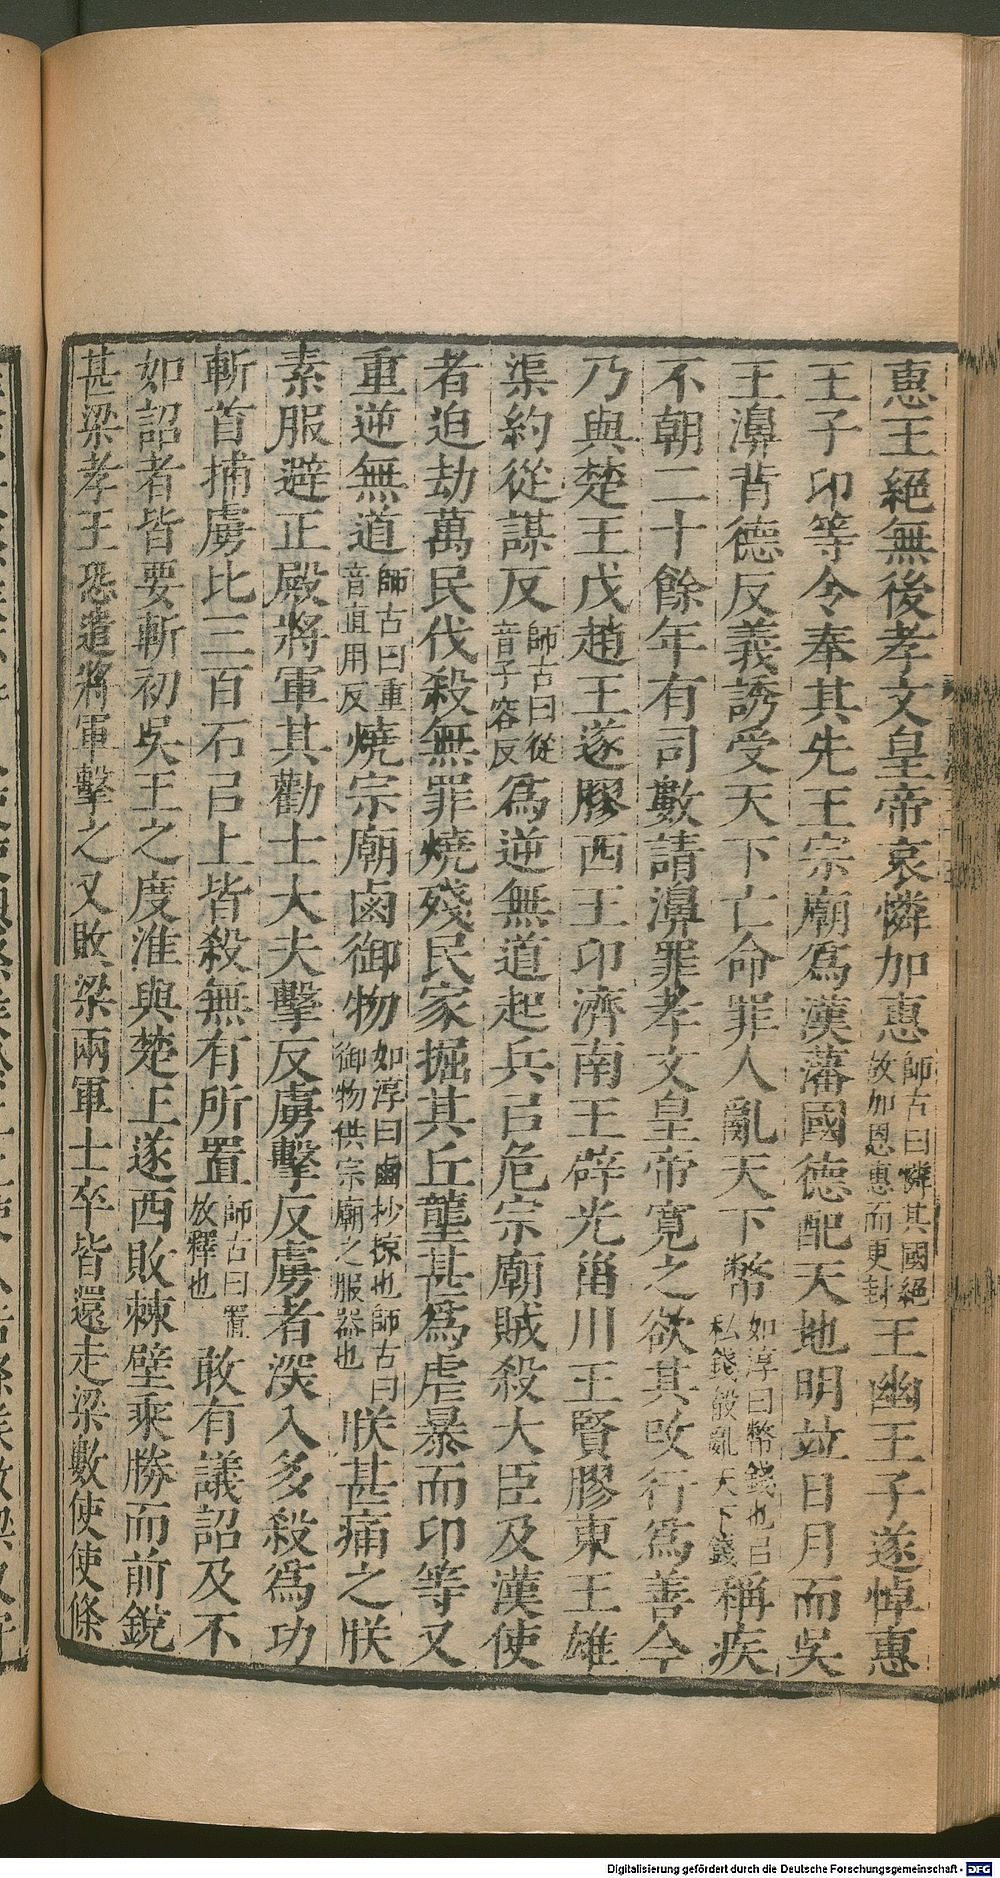 惠王絕無後孝文皇帝哀憐加惠師古曰憐其國絕故加恩惠而更封王幽王子遂悼惠
王子卬等令奉其先王宗廟爲漢藩國德配天地明竝日月而吳
王濞背德反義誘受天下亡命罪人亂天下幣如淳曰幣錢也㠯私錢殽亂天下錢稱疾
不朝二十餘年有司數請濞罪孝文皇帝寬之欲其攺行爲善今
乃與楚王戊趙王遂膠西王卬濟南王辟光甾川王賢膠東王雄
渠約從謀反師古曰從音子容反爲逆無道起兵㠯危宗廟賊殺大臣及漢使
者迫劫萬民伐殺無罪燒殘民家掘其丘壟甚爲虐暴而卬等又
重逆無道師古曰重音直用反燒宗廟鹵御物如淳曰鹵抄掠也師古曰御物供宗廟之服器也朕甚痛之朕
素服避正殿將軍其勸士大夫擊反虜擊反虜者深入多殺爲功
斬首捕虜比三百石㠯上皆殺無有所置師古曰置放釋也敢有議詔及不
如詔者皆要斬初吳王之度淮與楚王遂西敗棘壁乘勝而前銳
甚梁孝王恐遣將軍擊之又敗梁兩軍士卒皆還走梁數使使條
Digitalisierung gefördert durch die Deutsche Forschungsgemeinschaft - DFG